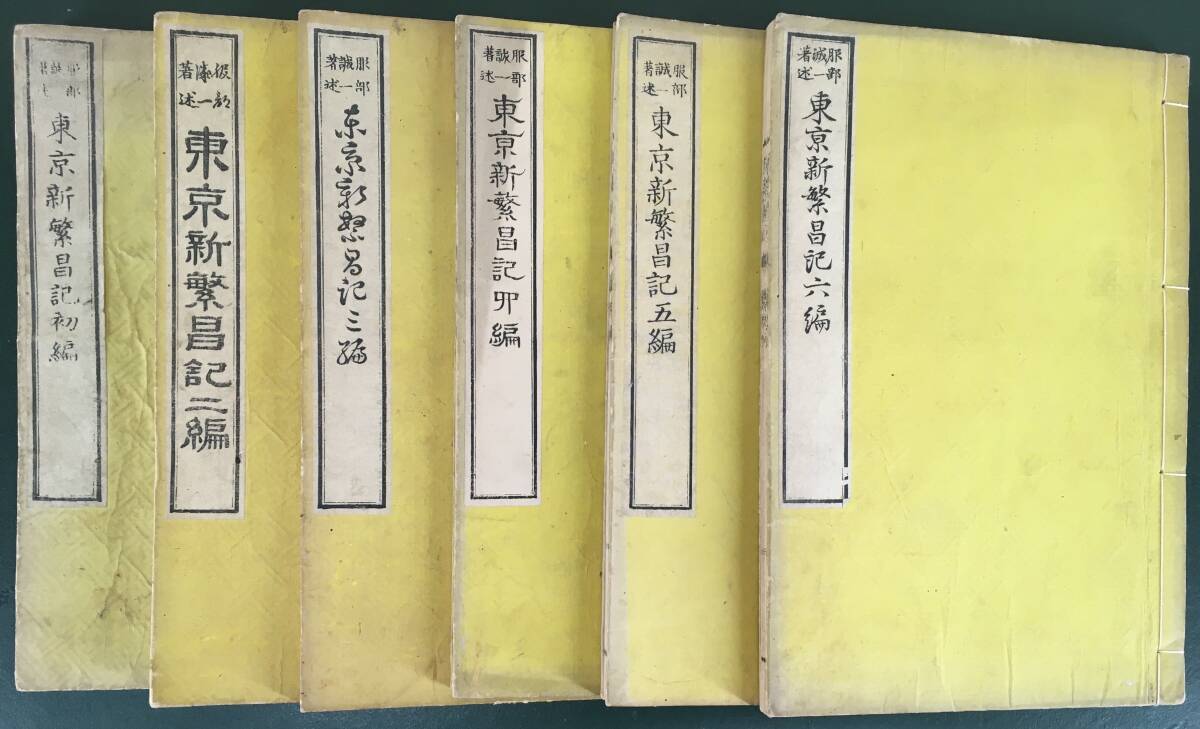 服部
誠一
東京新繁昌記初編
服部
誠一
著述
東京新繁昌記二編
服部
誠一
著述
東京新繁昌記三編
服部
誠一
著述
東京新繁昌記四編
服部
誠一
著述
東京新繁昌記五編
服部
誠一
著述
東京新繁昌記六編